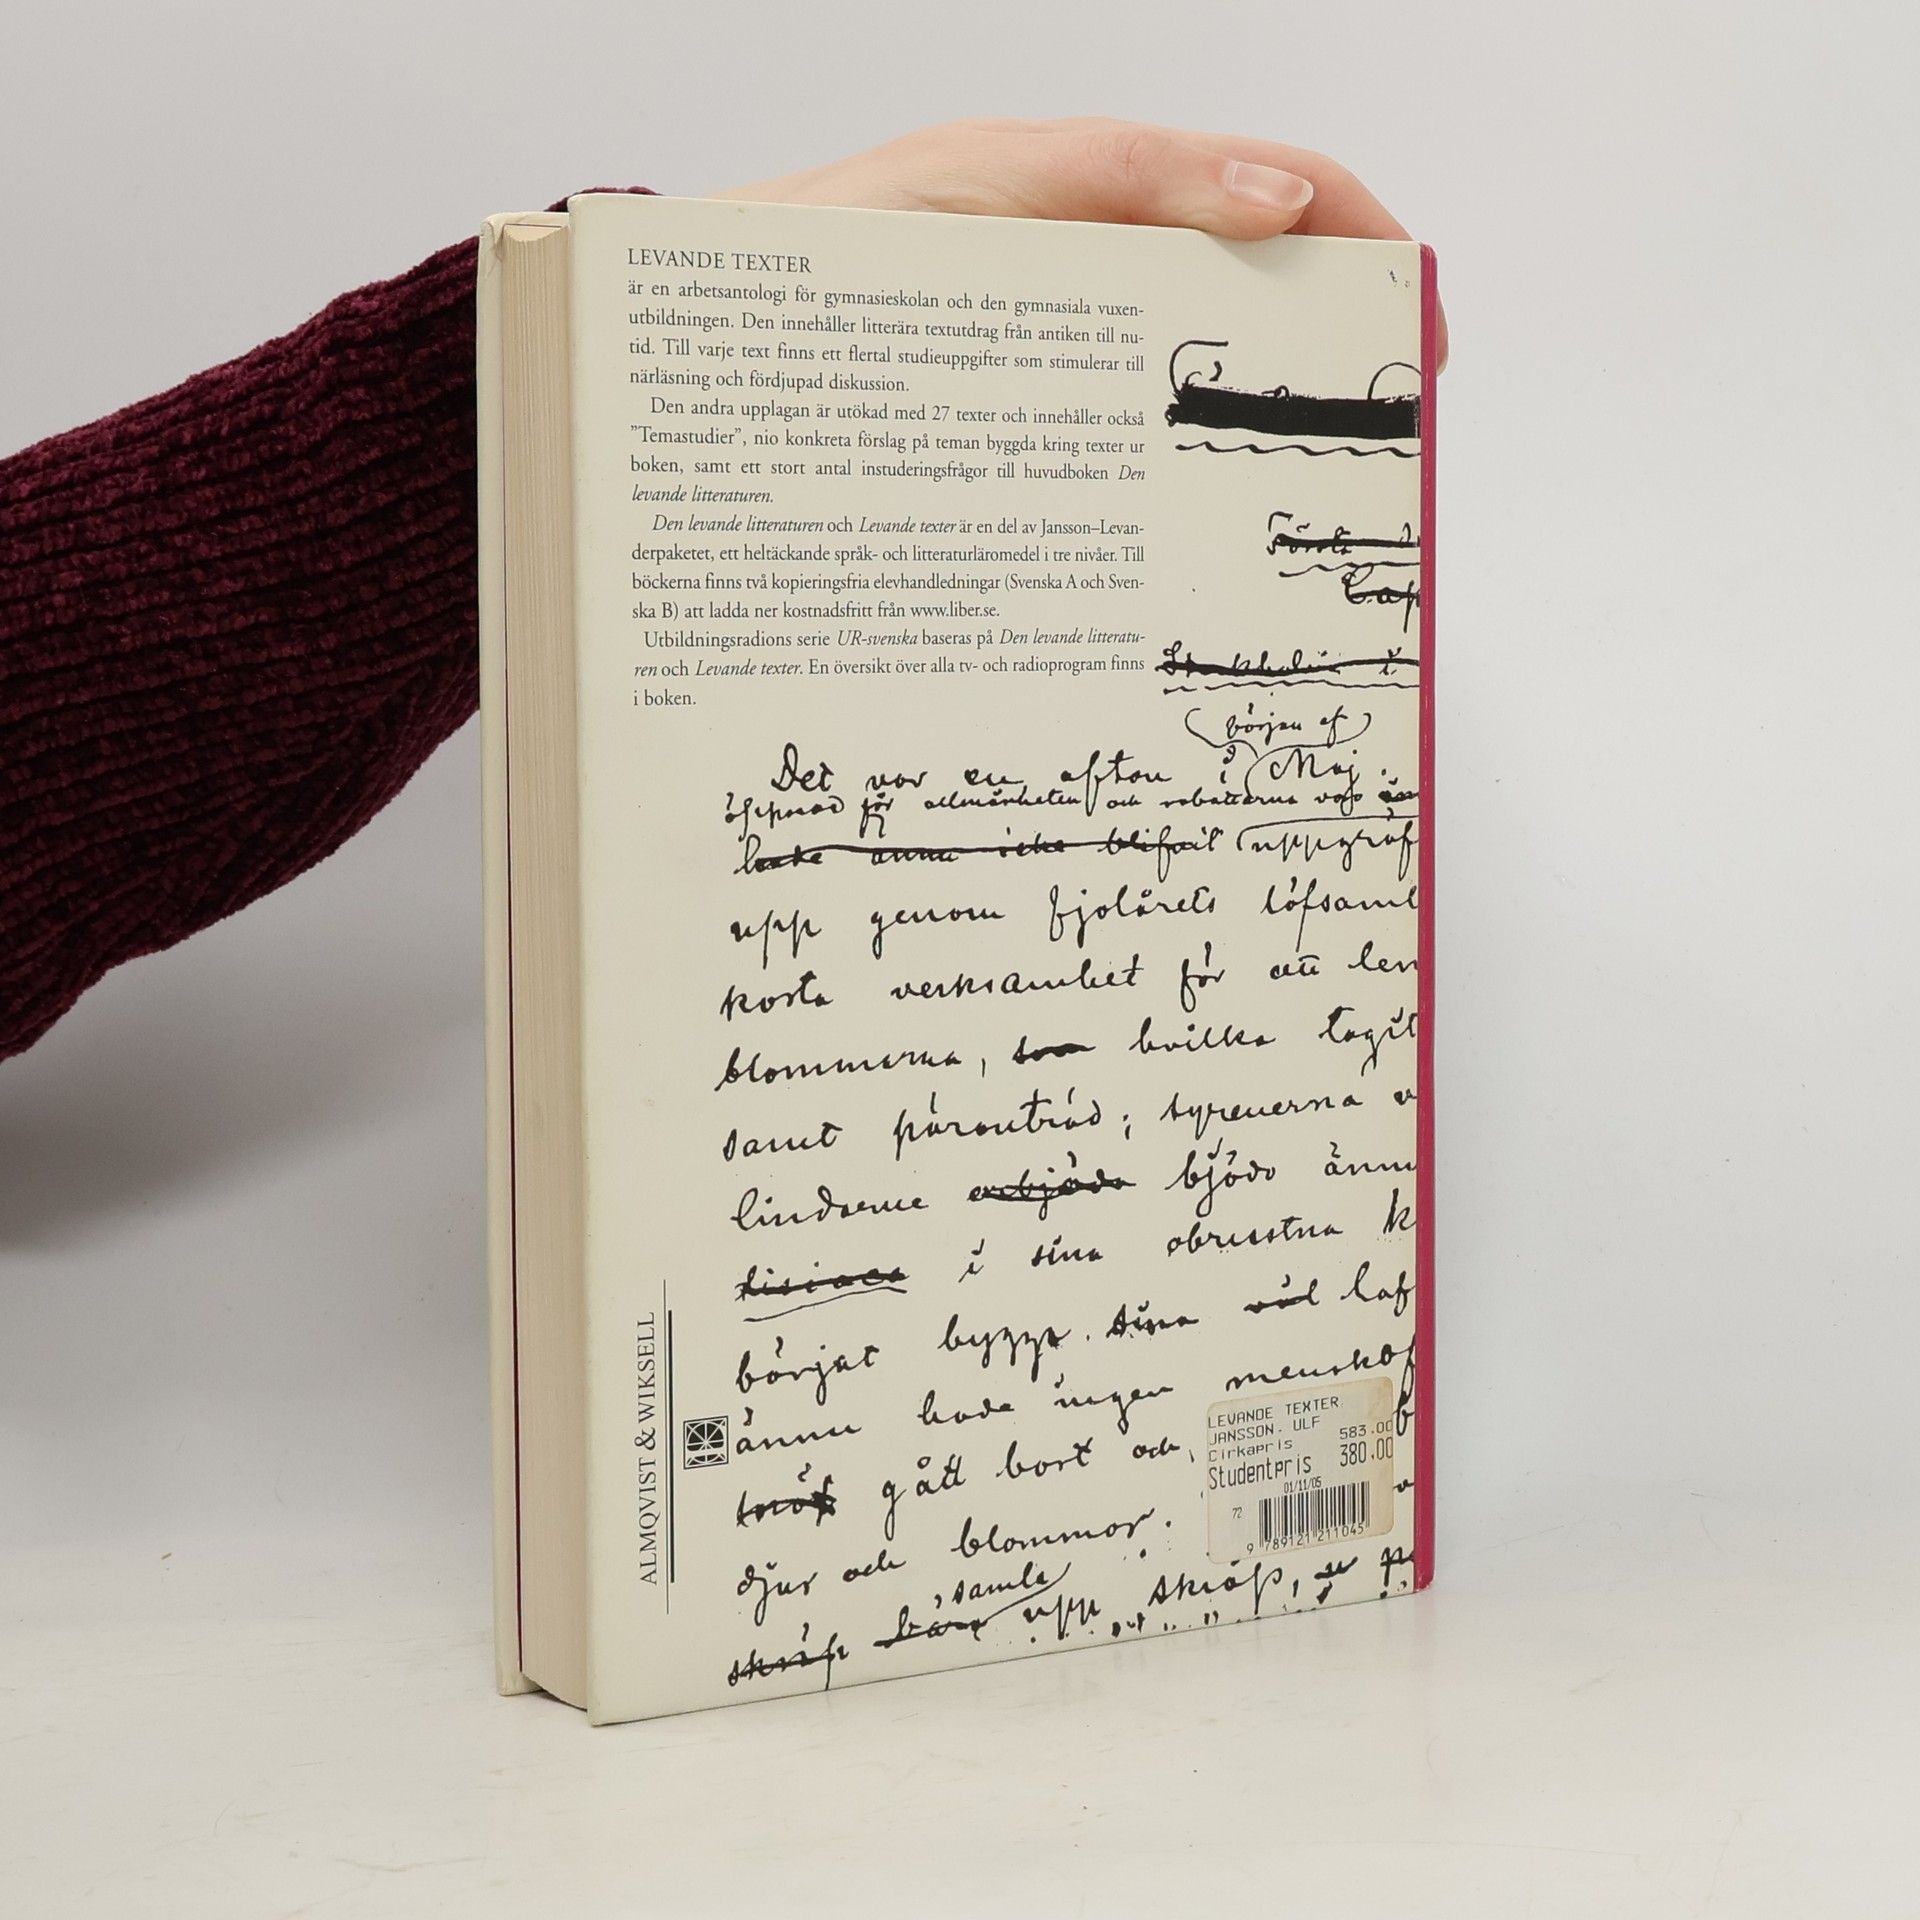 LEVANDE TEXTER
är en arbetsantologi för gymnasieskolan och den gymnasiala vuxen-
utbildningen. Den innehåller litterära textutdrag från antiken till nu-
tid. Till varje text finns ett flertal studieuppgifter som stimulerar till
närläsning och fördjupad diskussion.
Den andra upplagan är utökad med 27 texter och innehåller också
”Temastudier”, nio konkreta förslag på teman byggda kring texter ur
boken, samt ett stort antal instuderingsfrågor till huvudboken Den
levande litteraturen.
Den levande litteraturen och Levande texter är en del av Jansson–Levan-
derpaketet, ett heltäckande språk- och litteraturläromedel i tre nivåer. Till
böckerna finns två kopieringsfria elevhandledningar (Svenska A och Sven-
ska B) att ladda ner kostnadsfritt från www.liber.se.
Utbildningsradions serie UR-svenska baseras på Den levande litteratu-
ren och Levande texter. En översikt över alla tv- och radioprogram finns
i boken.
Första
Cap
Stockholm i
början af
Det var en afton i Maj.
öppnad för allmänheten och rabatterna voro
hade ännu icke blifvit uppgräf
upp genom fjolårets löfsaml
korta verksamhet för att
blommorna, som hvilka tagit
samt päronträd; syrenerna
lindarne erbjödo bjödo ännu
i sina obrustna k
börjat bygga sina löf
ännu hade ingen menskof
gått bort och
djur och blommor.
samla
skräp bära upp skräp,
ALMQVIST & WIKSELL
LEVANDE TEXTER
JANSSON. ULF
Cirkapris 583.00
Studentpris 380.00
01/11/05
72
9 789121 211045